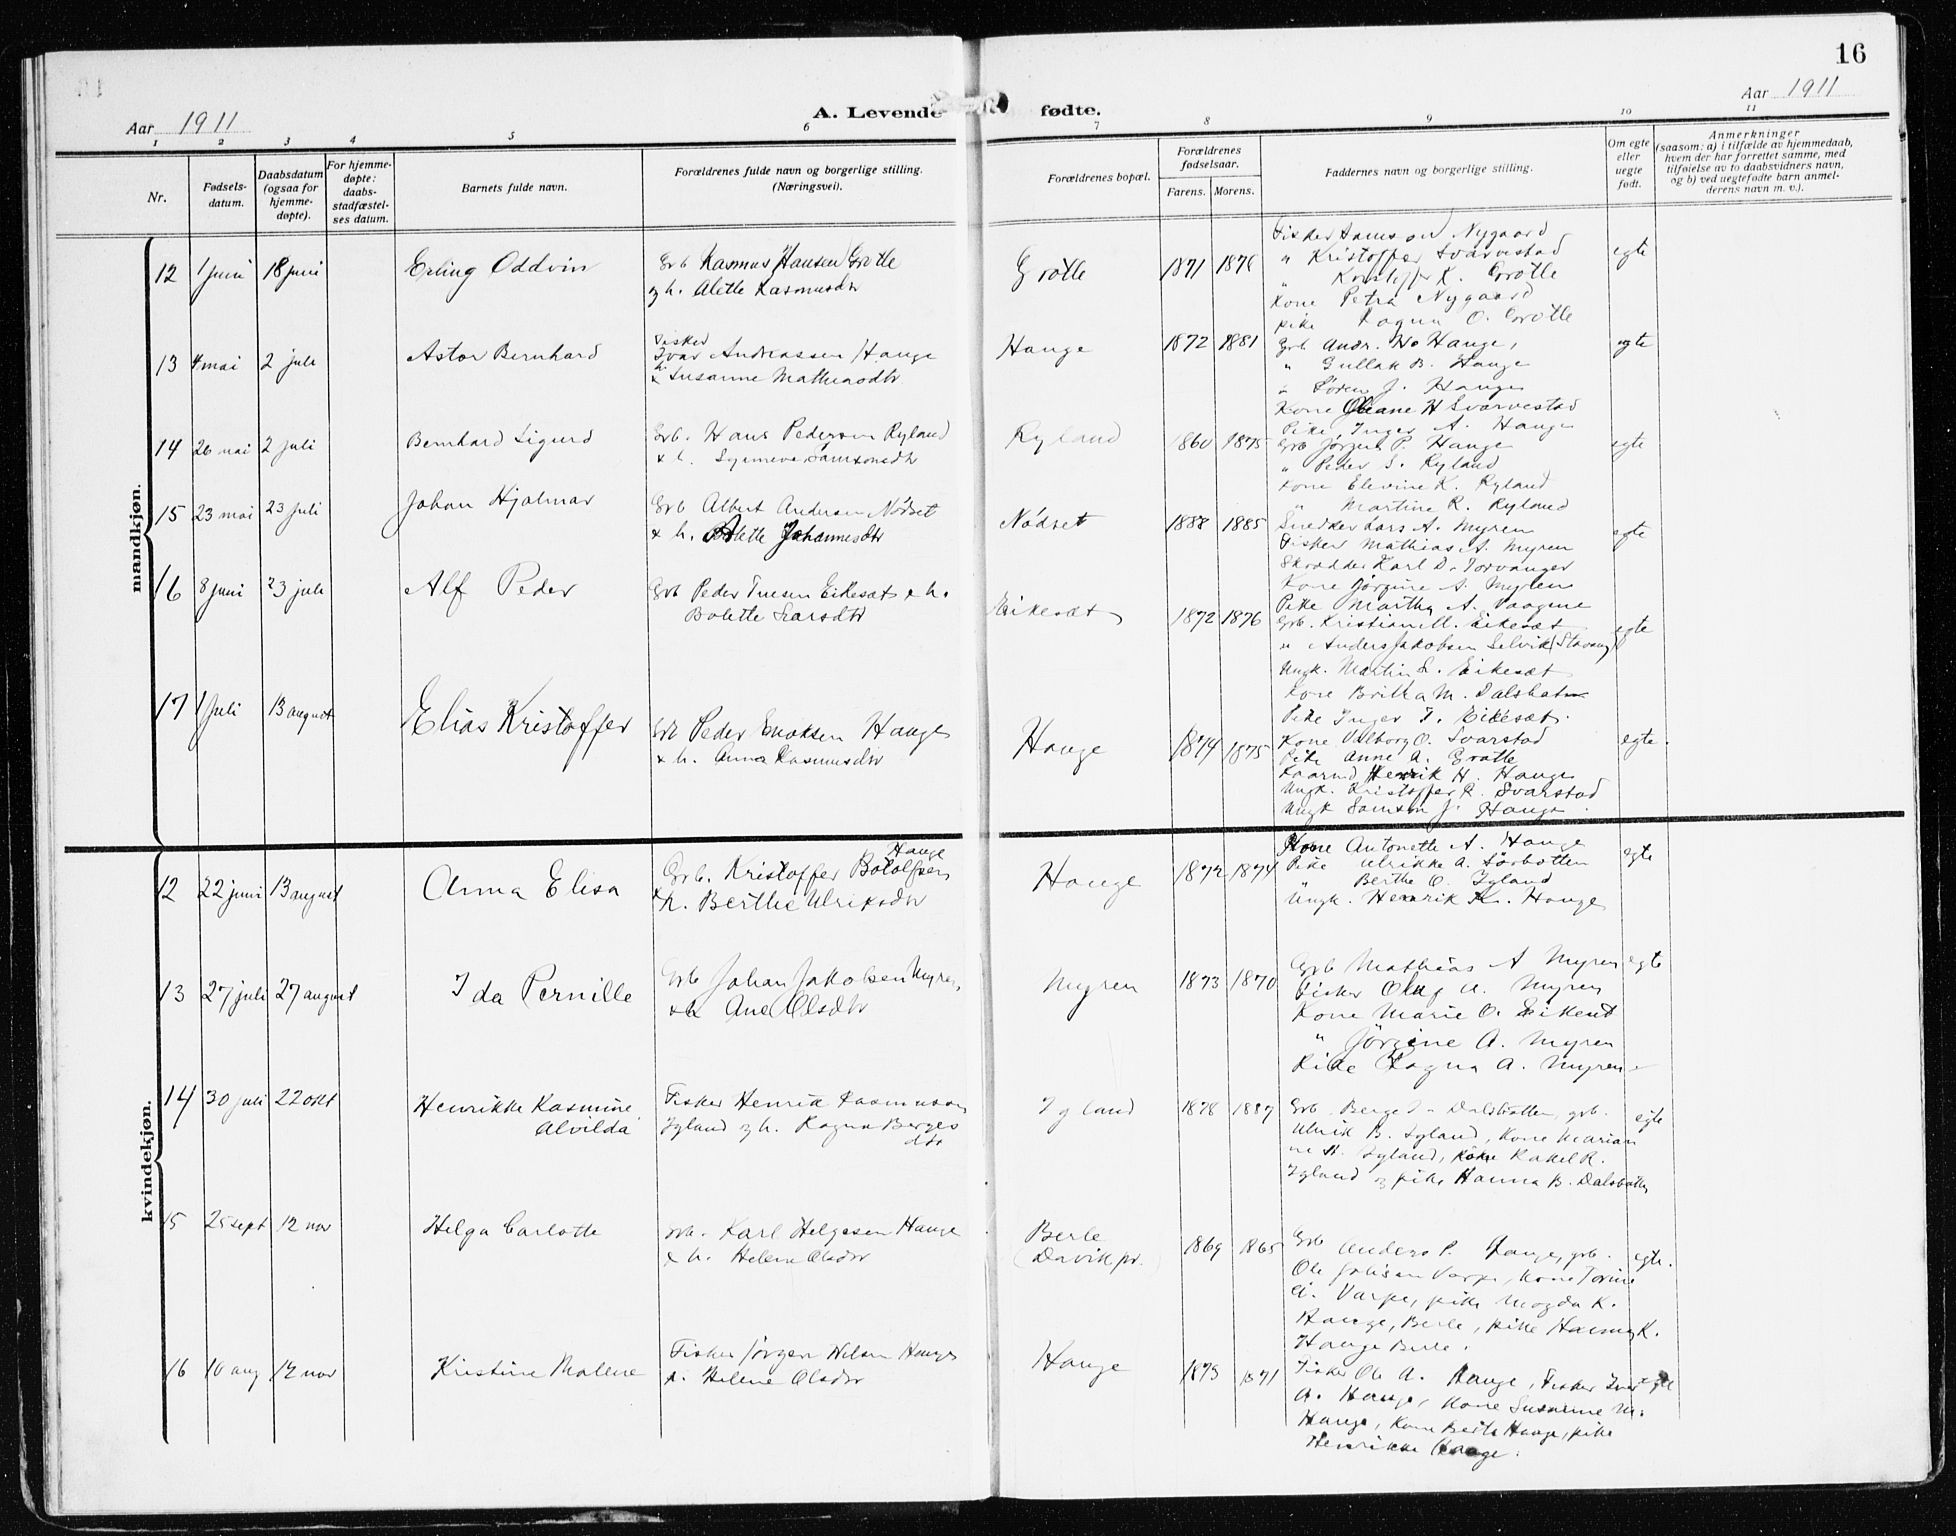 16
Aar 1911
A. Levende fødte.
Aar 1911
1 2 3 4 5 6 7 8 9 10 11
Nr.
Fødsels-
datum.
Daabsdatum
(ogsaa for
hjemme-
døpte).
For hjemme-
døpte:
daabs-
stadfæstel-
ses datum.
Barnets fulde navn.
Forældrenes fulde navn og borgerlige stilling.
(Næringsvei).
Forældrenes bopæl.
Forældrenes
fødselsaar.
Farens. Morens.
Faddernes navn og borgerlige stilling.
Om egte
eller
uegte
født.
Anmerkninger
(saasom: a) i tilfælde av hjemmedaab,
hvem der har forrettet samme, med
tilføielse av to daabsvidners navn,
og b) ved uegtefødte barn anmel-
derens navn m. v.).
mandkjøn.
12 1 juni 18 juni Erling Oddvin
Grb Rasmus Hansen Grotle
og h. Alette Rasmusdtr
Grotle 1871 1876
Fisker Samson Nygaard
" Kristoffer Svarvestad
" Kristoffer K. Grotle
Kone Petra Nygaard
pike Ragna O. Grotle
egte
13 4 mai 2 juli Astor Bernhard
Fisker
Ivar Andreassen Hauge
& h. Susanne Mathiasdtr
Hauge 1872 1881
Grb Andr. H. Hauge,
" Gullak B. Hauge
" Søren J. Hauge
Kone Oleane H Svarvestad
Pike Inger A. Hauge
egte
14 26 mai 2 juli Bernhard Sigurd
Grb. Hans Pedersen Ryland
& h. Synneva Samsonsdtr
Ryland 1860 1875
Grb Jørgen P. Hauge
" Peder S. Ryland
Kone Elevine K. Ryland
" Martine R. Ryland
egte
15 23 mai 23 juli Johan Hjalmar
Grb Albert Andersen Nødset
& h. Alette Johannesdtr
Nødset 1888 1885
Snedker Lars A. Myren
Fisker Mathias A. Myren
Skrædder Karl D. Torvanger
Kone Jørgine A. Myren
Pike Martha A. Vaagene
egte
16 8 juni 23 juli Alf Peder
Grb Peder Tuesen Eikesæt & h.
Bolette Larsdtr
Eikesæt 1872 1876
Grb. Kristian M. Eikesæt
" Anders Jakobsen Selvik (Stavang)
Ungk. Martin L. Eikesæt
Kone Britha M. Dalsbotn
Pike Inger T. Eikesæt.
egte
17 1 Juli 13 august Elias Kristoffer
Grb Peder Enoksen Hauge
& h. Anna Rasmusdtr
Hauge 1874 1875
Kone Valborg O. Svarstad
Pike Anne A. Grotle
Kaarmd Henrik H. Hauge
Ungk. Kristoffer R. Svarstad
Ungk Samson J. Hauge.
egte.
kvindekjøn.
12 22 juni 13 august Anna Elisa
Hauge
Grb. Kristoffer Botolfsen
& h. Berthe Ulriksdtr
Hauge 1872 1874
Kone Antonette A. Hauge
Pike Ulrikke A. Sørbotten
Berthe O. Igland
Ungk. Henrik K. Hauge
egte
13 27 juli 27 august Ida Pernille
Grb Johan Jakobsen Myren,
& h Ane Olsdtr
Myren 1873 1870
Grb Mathias A Myren
Fisker Olug A. Myren
Kone Marie O. Eikeset
" Jørgine A. Myren
Pike Ragna A. Myren
egte
14 30 juli 22 okt Henrikke Rasmine
Alvilda
Fisker Henrik Rasmussen
Igland og h. Ragna Berges
dtr
Igland 1878 1887
Grb. Berge I. Dalsbotten, grb.
Ulrik B. Igland, Kone Marian
ne A. Igland, pike Rakel R.
Igland og pike Hanna B. Dalsbotten
egte
15 25 sept 12 nov Helga Carlotte
Grb. Karl Helgesen Hauge
& h. Helene Olsdtr
Berle
(Davik pr.)
1869 1865
Grb Anders P. Hauge, grb.
Ole Johisen Varpe, Kone Torine
A. Varpe, pike Magda K.
Hauge, Berle, pike Hanny K.
Hauge Berle.
egte.
16 10 aug 12 nov Kristine Malene
Fisker Jørgen Nilsen Hauge
& h. Helene Olsdtr
Hauge 1873 1871
Fisker Ole A. Hauge, Fisker Ivar
A. Hauge, Kone Susanne M.
Hauge, Kone Berte Hauge, pike
Henrikke Hauge.
egte